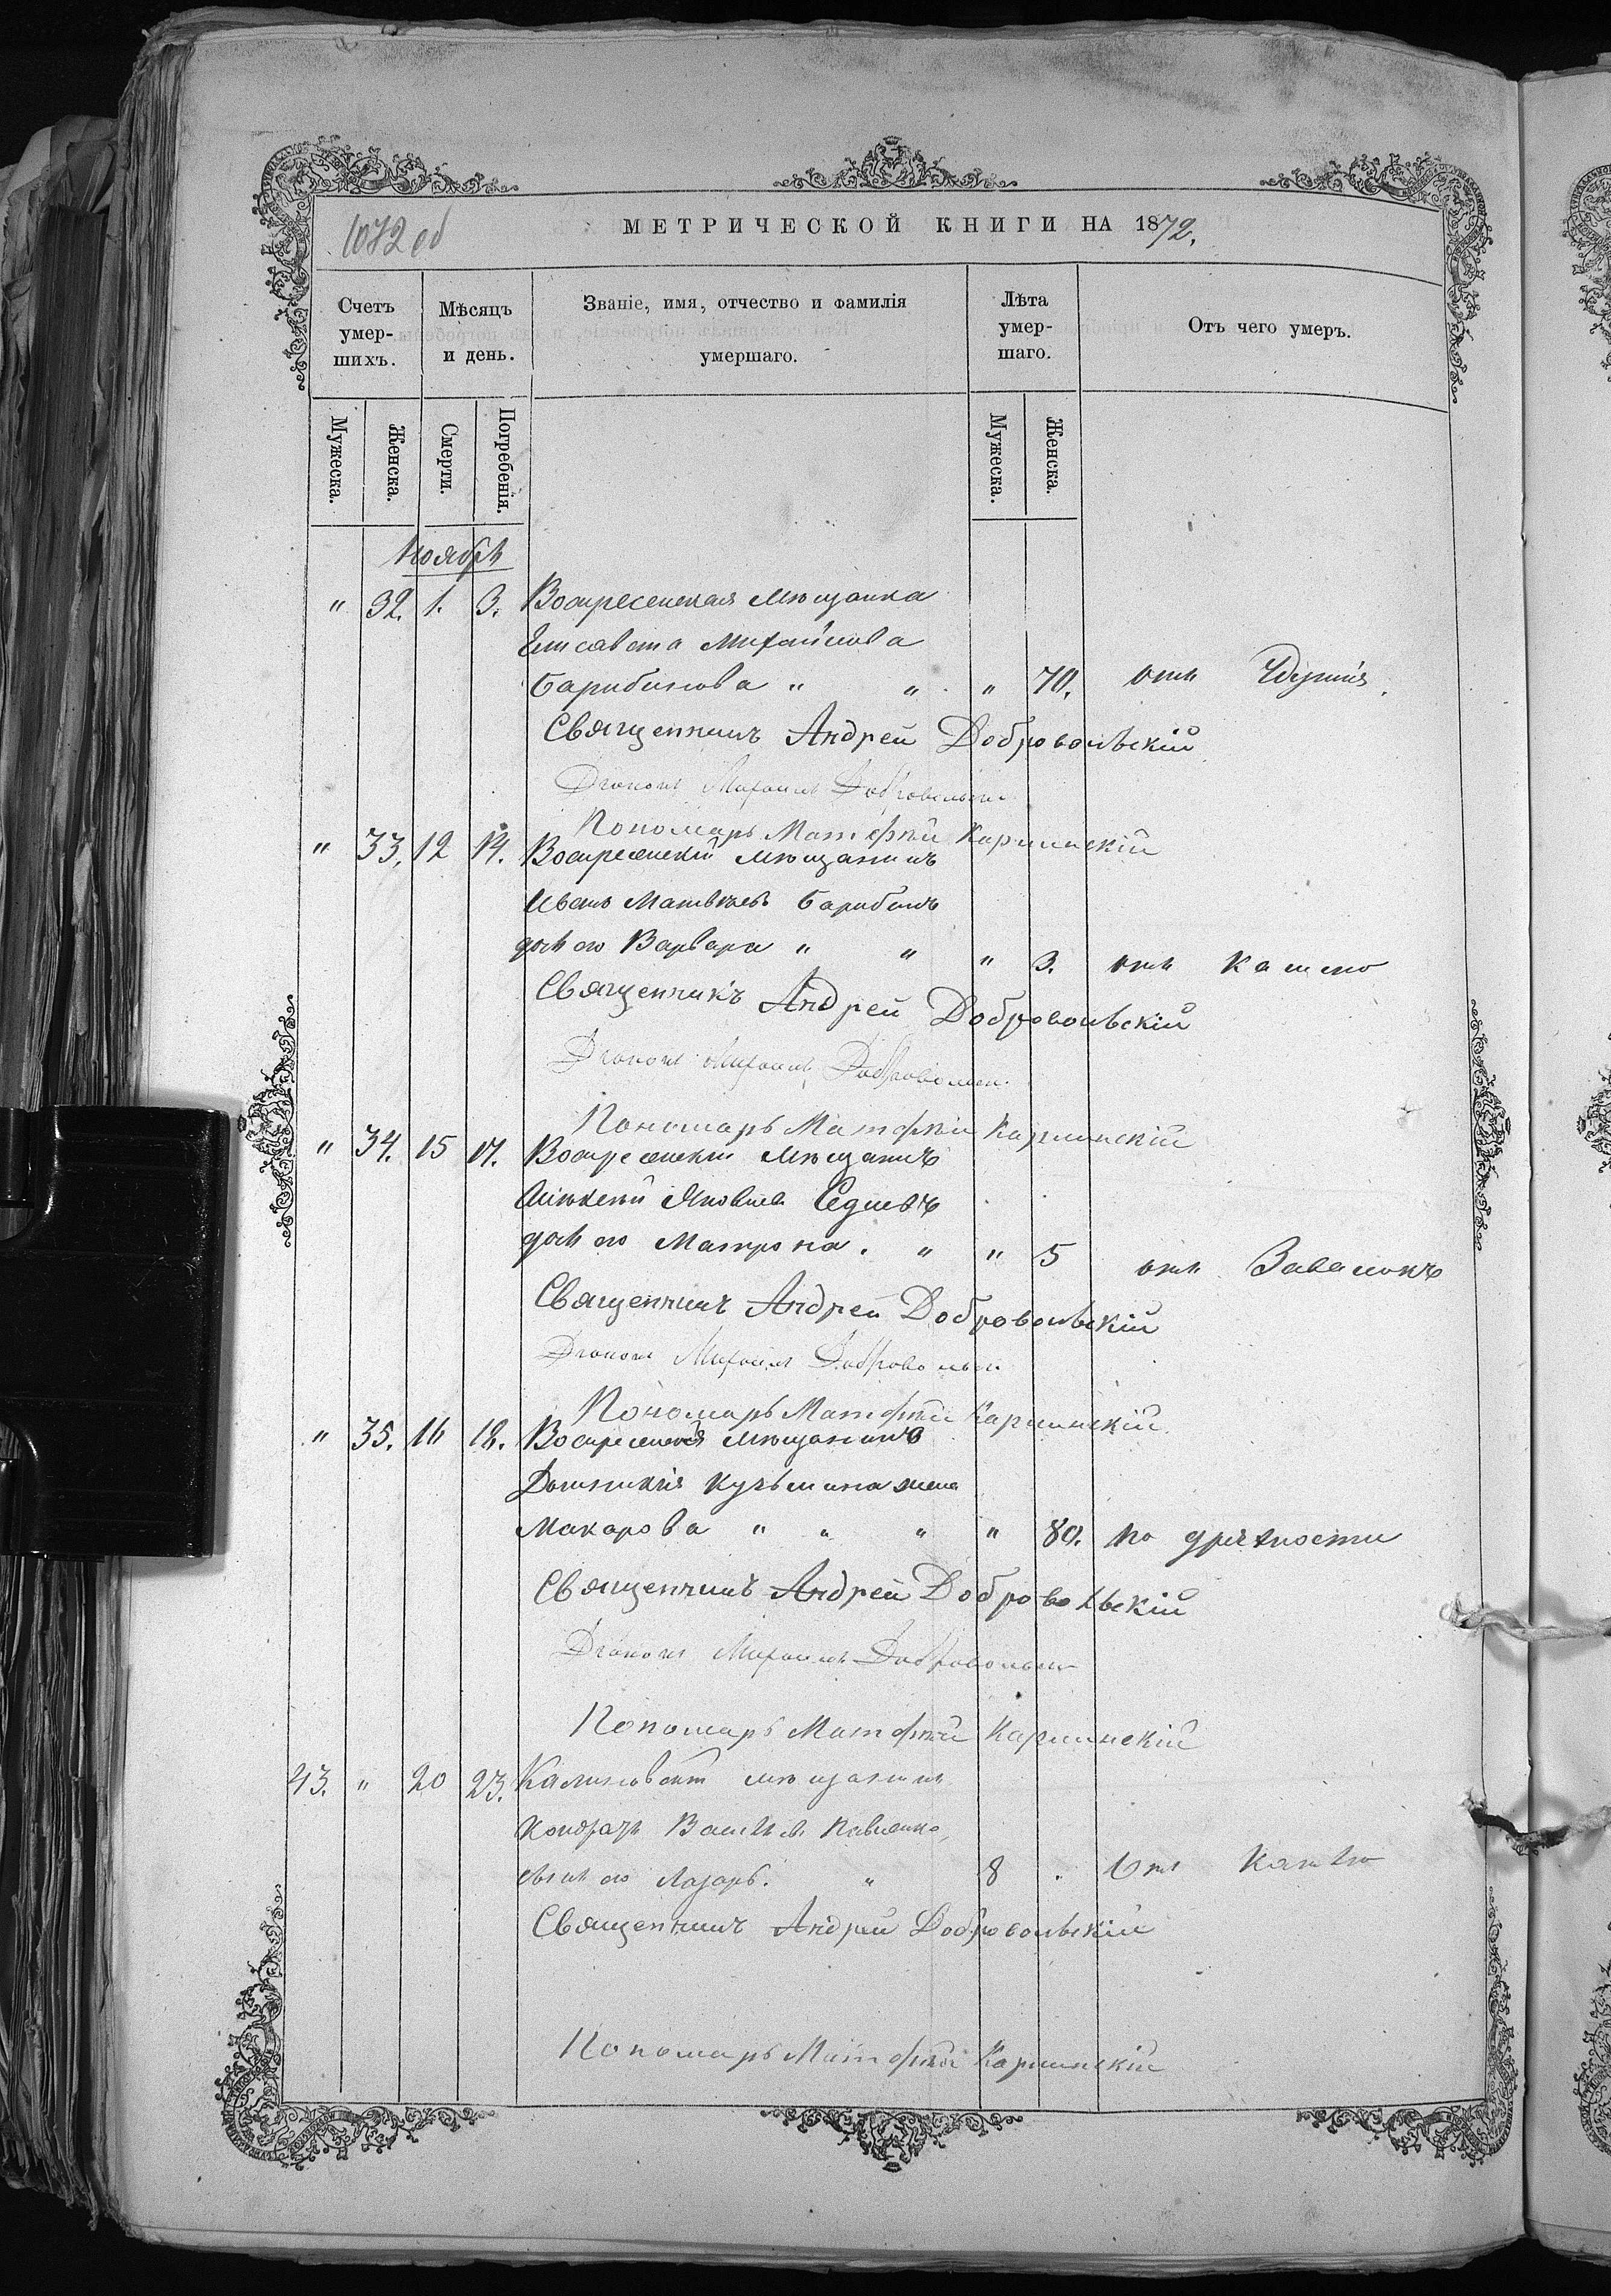 1072 об
МЕТРИЧЕСКОЙ КНИГИ НА 1872.
Счетъ умер-шихъ.
Мѣсяцъ и день.
Званіе, имя, отчество и фамилія умершаго.
Лѣта умер-шаго.
Отъ чего умеръ.
Мужеска.
Женска.
Смерти.
Погребенія.
Мужеска.
Женска.
Ноябрь
" 32. 1. 3. Воскресенская мѣщанка
Елисавета Михайлова
Барибинова " " " 70. отъ Удушія.
Священникъ Андрей Добровольскій
Діаконъ Михаилъ Добровольскій
Пономарь Матфѣй Карпинскій
" 33. 12 14. Воскресенскій мѣщанинъ
Иванъ Матвѣевъ Барибинъ
дочь его Варвара " " " 3. отъ Кашлю
Священникъ Андрей Добровольскій
Діаконъ Михаилъ Добровольскій
Пономарь Матфѣй Карпинскій
" 34. 15 17. Воскресенскій мѣщанинъ
Алексѣй Яковлевъ
дочь его Матрона. " " 5 отъ Завалокъ
Священникъ Андрей Добровольскій
Діаконъ Михаилъ Добровольскій
Пономарь Матфѣй Карпинскій
" 35. 16 18. мѣщанина
Кузьмина жена
Макарова " " " " 80. по дряхлости
Священникъ Андрей Добровольскій
Діаконъ Михаилъ Добровольскій
Пономарь Матфѣй Карпинскій
43. " 20 23. мѣщанинъ
Кондратъ Васильевъ Павленко,
сынъ его Лазарь. " 8 . Отъ Кашлю
Священникъ Андрей Добровольскій
Пономарь Матфѣй Карпинскій